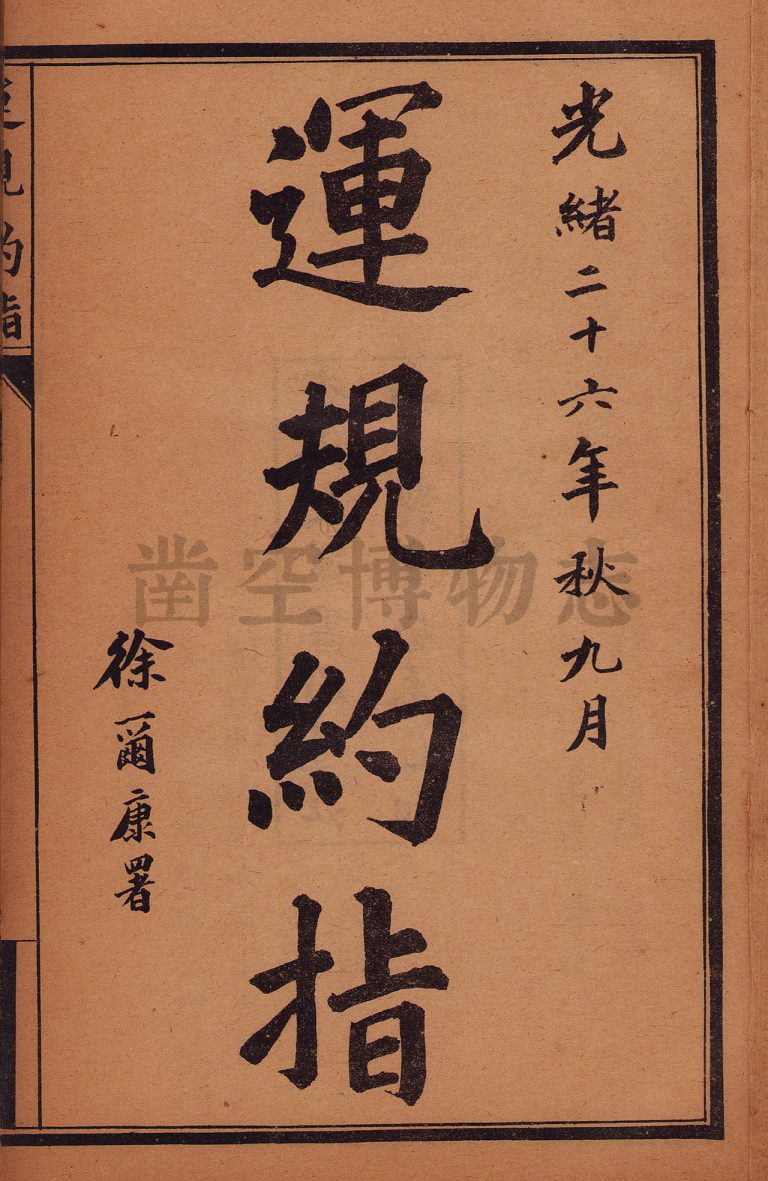 光緒二十六年秋九月
運規約指
徐爾康署
運規約指
凿空博物志